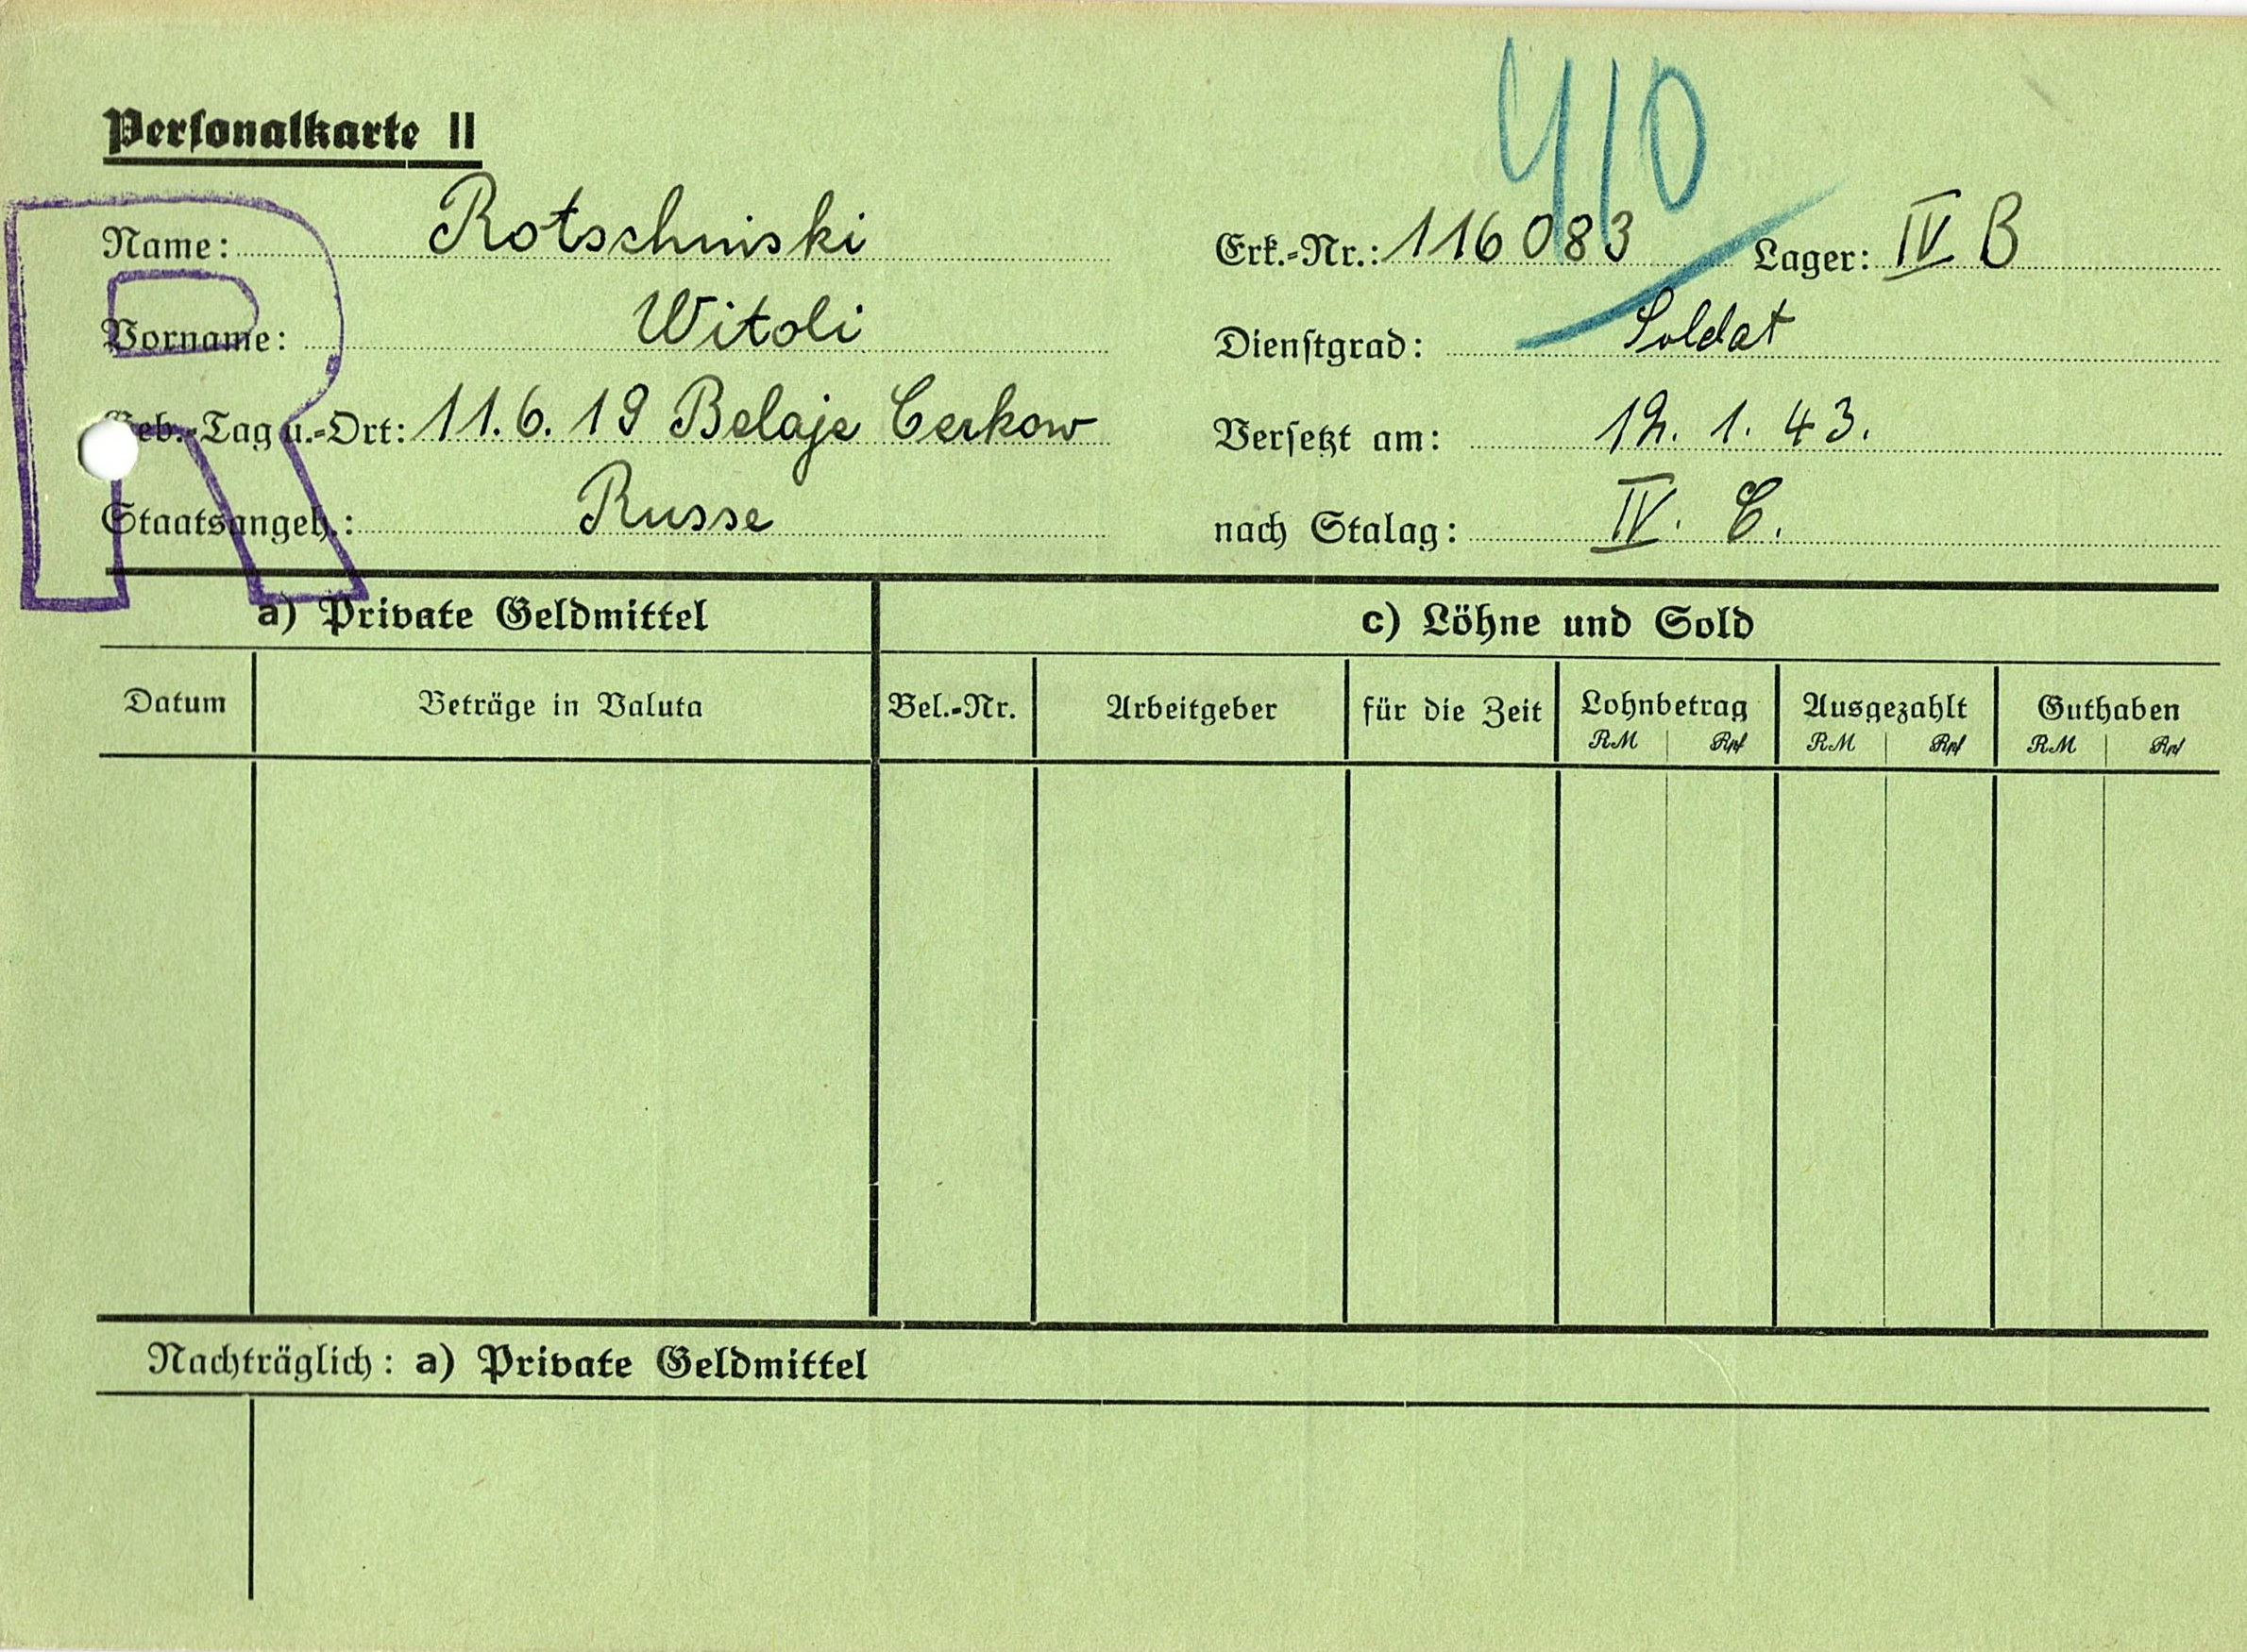 410
Personalkarte II
R
Name: Rotschinski Erk.-Nr.: 116083 Lager: IV B
Vorname: Witoli Dienstgrad: Soldat
Geb.-Tag u.-Ort: 11.6.19 Belaje Cerkow Versetzt am: 12.1.43.
Staatsangeh.: Russe nach Stalag: IV. C.
a) Private Geldmittel c) Löhne und Sold
Datum Beträge in Valuta Bel.-Nr. Arbeitgeber für die Zeit Lohnbetrag Ausgezahlt Guthaben
RM Rpf RM Rpf RM Rpf
Nachträglich: a) Private Geldmittel